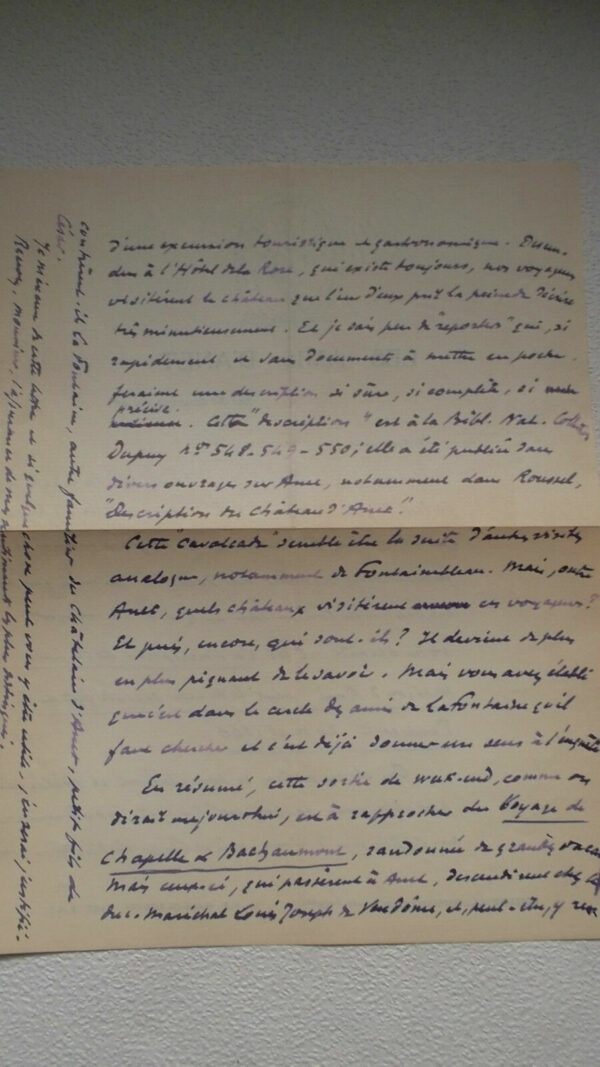 d'une excursion touristique et gastronomique. Descen-
dus à l'Hôtel de la Rose, qui existe toujours, nos voyageurs
visitèrent le château que l'un d'eux prit la peine de décrire
très minutieusement. Et je sais peu de "reporters" qui, si
rapidement et sans documents à mettre en poche,
feraient une description si sûre, si complète, si
précise. Cette "description" est à la Bibl. Nat. Collon
Dupuy nos 548-549-550; elle a été publiée dans
divers ouvrages sur Anet, notamment dans Roussel,
"Description du Château d'Anet".
Cette "Cavalcade" semble être la suite d'autres visites
analogues, notamment de Fontainebleau. Mais, outre
Anet, quels châteaux visitèrent ces voyageurs?
Et puis, encore, qui sont-ils? Il devient de plus
en plus piquant de le savoir. Mais vous avez établi
que c'est dans le cercle des amis de La Fontaine qu'il
faut chercher et c'est déjà donner un sens à l'enquête.
En résumé, cette sortie de week-end, comme on
dirait aujourd'hui, est à rapprocher du Voyage de
Chapelle et Bachaumont, randonnée de grandes vacan
Mais ceux-ci, qui passèrent à Anet, descendirent chez le
duc-Maréchal Louis Joseph de Vendôme, et, peut-être, y ren
contrèrent-ils La Fontaine, autre familier du Châtelain d'Anet, petit-fils de
César.
Je m'excuse de cette lettre et si quelque chose peut vous y être utile, j'en serai justifié.
Recevez, Monsieur, l'assurance de mes sentiments les plus distingués.